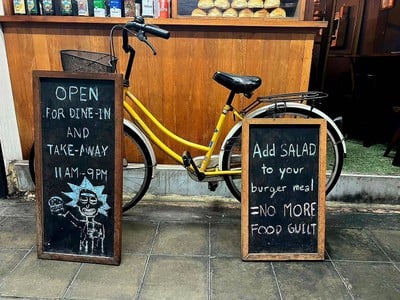 OPEN
FOR DINE-IN
AND
TAKE-AWAY
11AM-9PM
Add SALAD
to your
burger meal
=NO MORE
FOOD GUILT